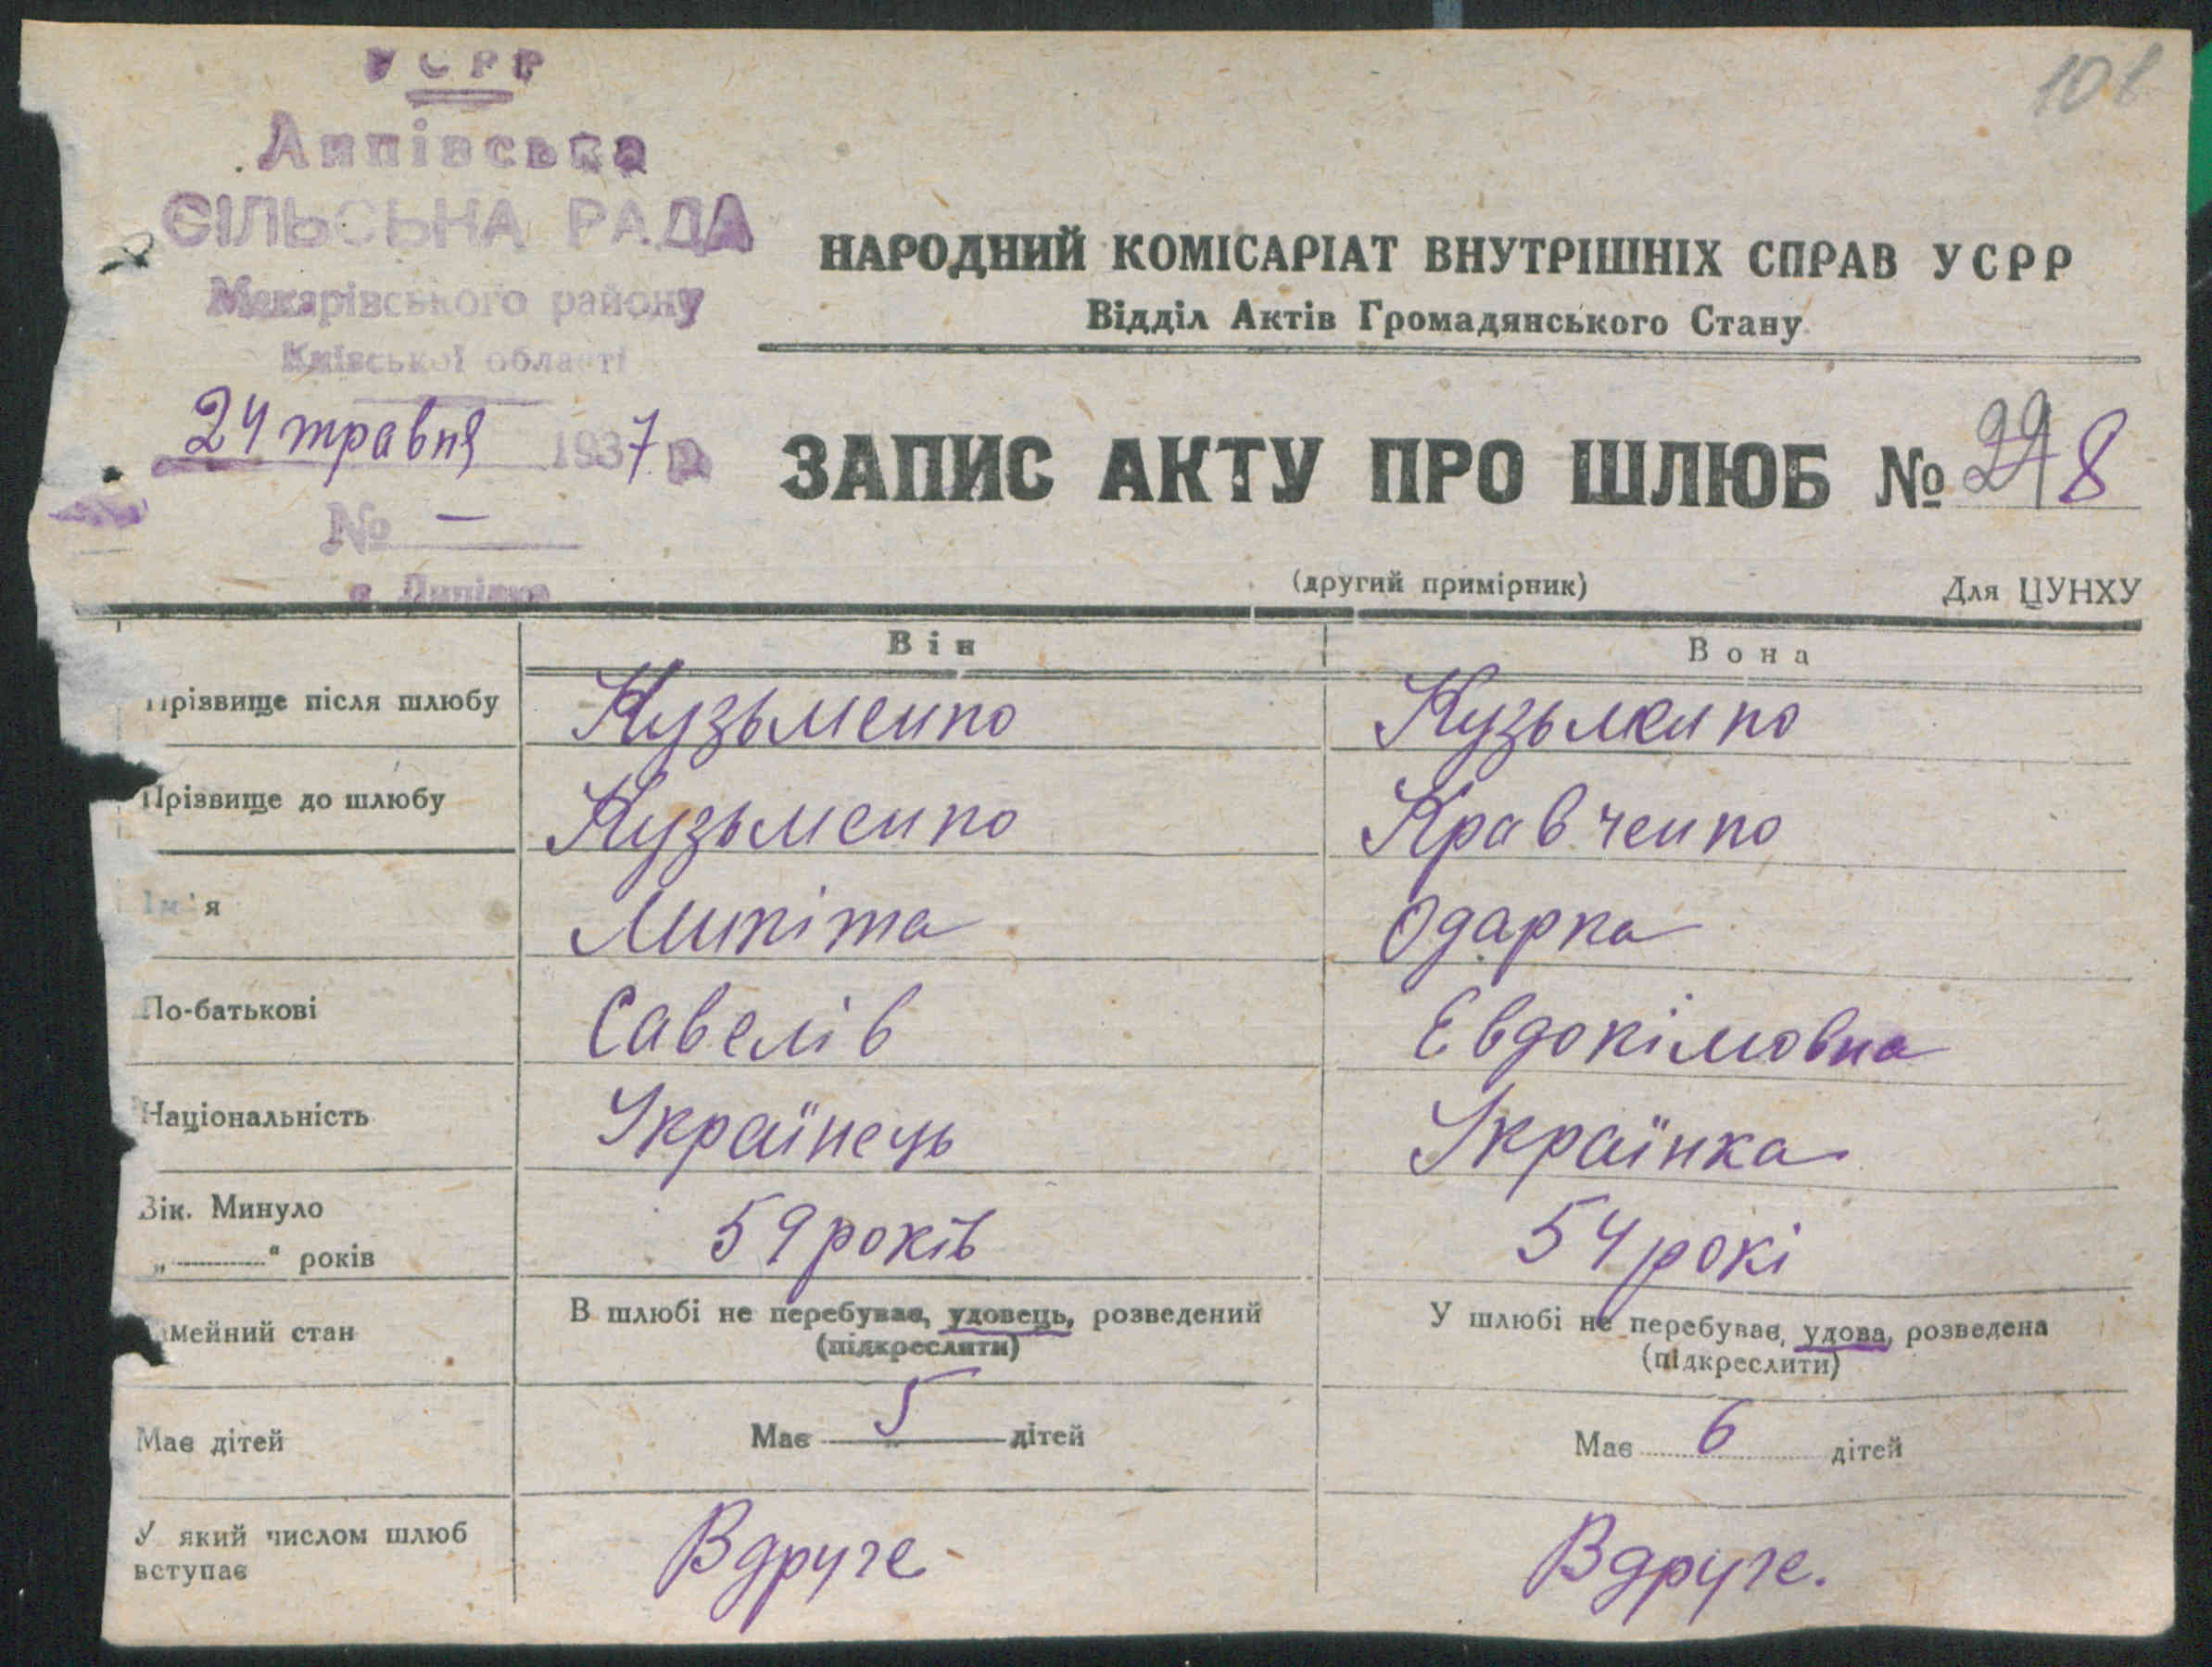 УСРР
101
Липівська
СІЛЬСЬКА РАДА
Макарівського району
Київської області
24 травня 1937 р
№ —
с. Липівка
НАРОДНИЙ КОМІСАРІАТ ВНУТРІШНІХ СПРАВ УСРР
Відділ Актів Громадянського Стану
ЗАПИС АКТУ ПРО ШЛЮБ № 8
(другий примірник) Для ЦУНХУ
Він Вона
Прізвище після шлюбу Кузьменко Кузьменко
Прізвище до шлюбу Кузьменко Кравченко
Ім'я Микіта Одарка
По-батькові Савелів Евдокімовна
Національність Українець Українка
Вік. Минуло
„ “ років 59 років 54 рокі
мейний стан В шлюбі не перебував, удовець, розведений У шлюбі не перебував, удова, розведена
(підкреслити) (підкреслити)
Має дітей Має 5 дітей Має 6 дітей
У який числом шлюб
вступає Вдруге Вдруге.